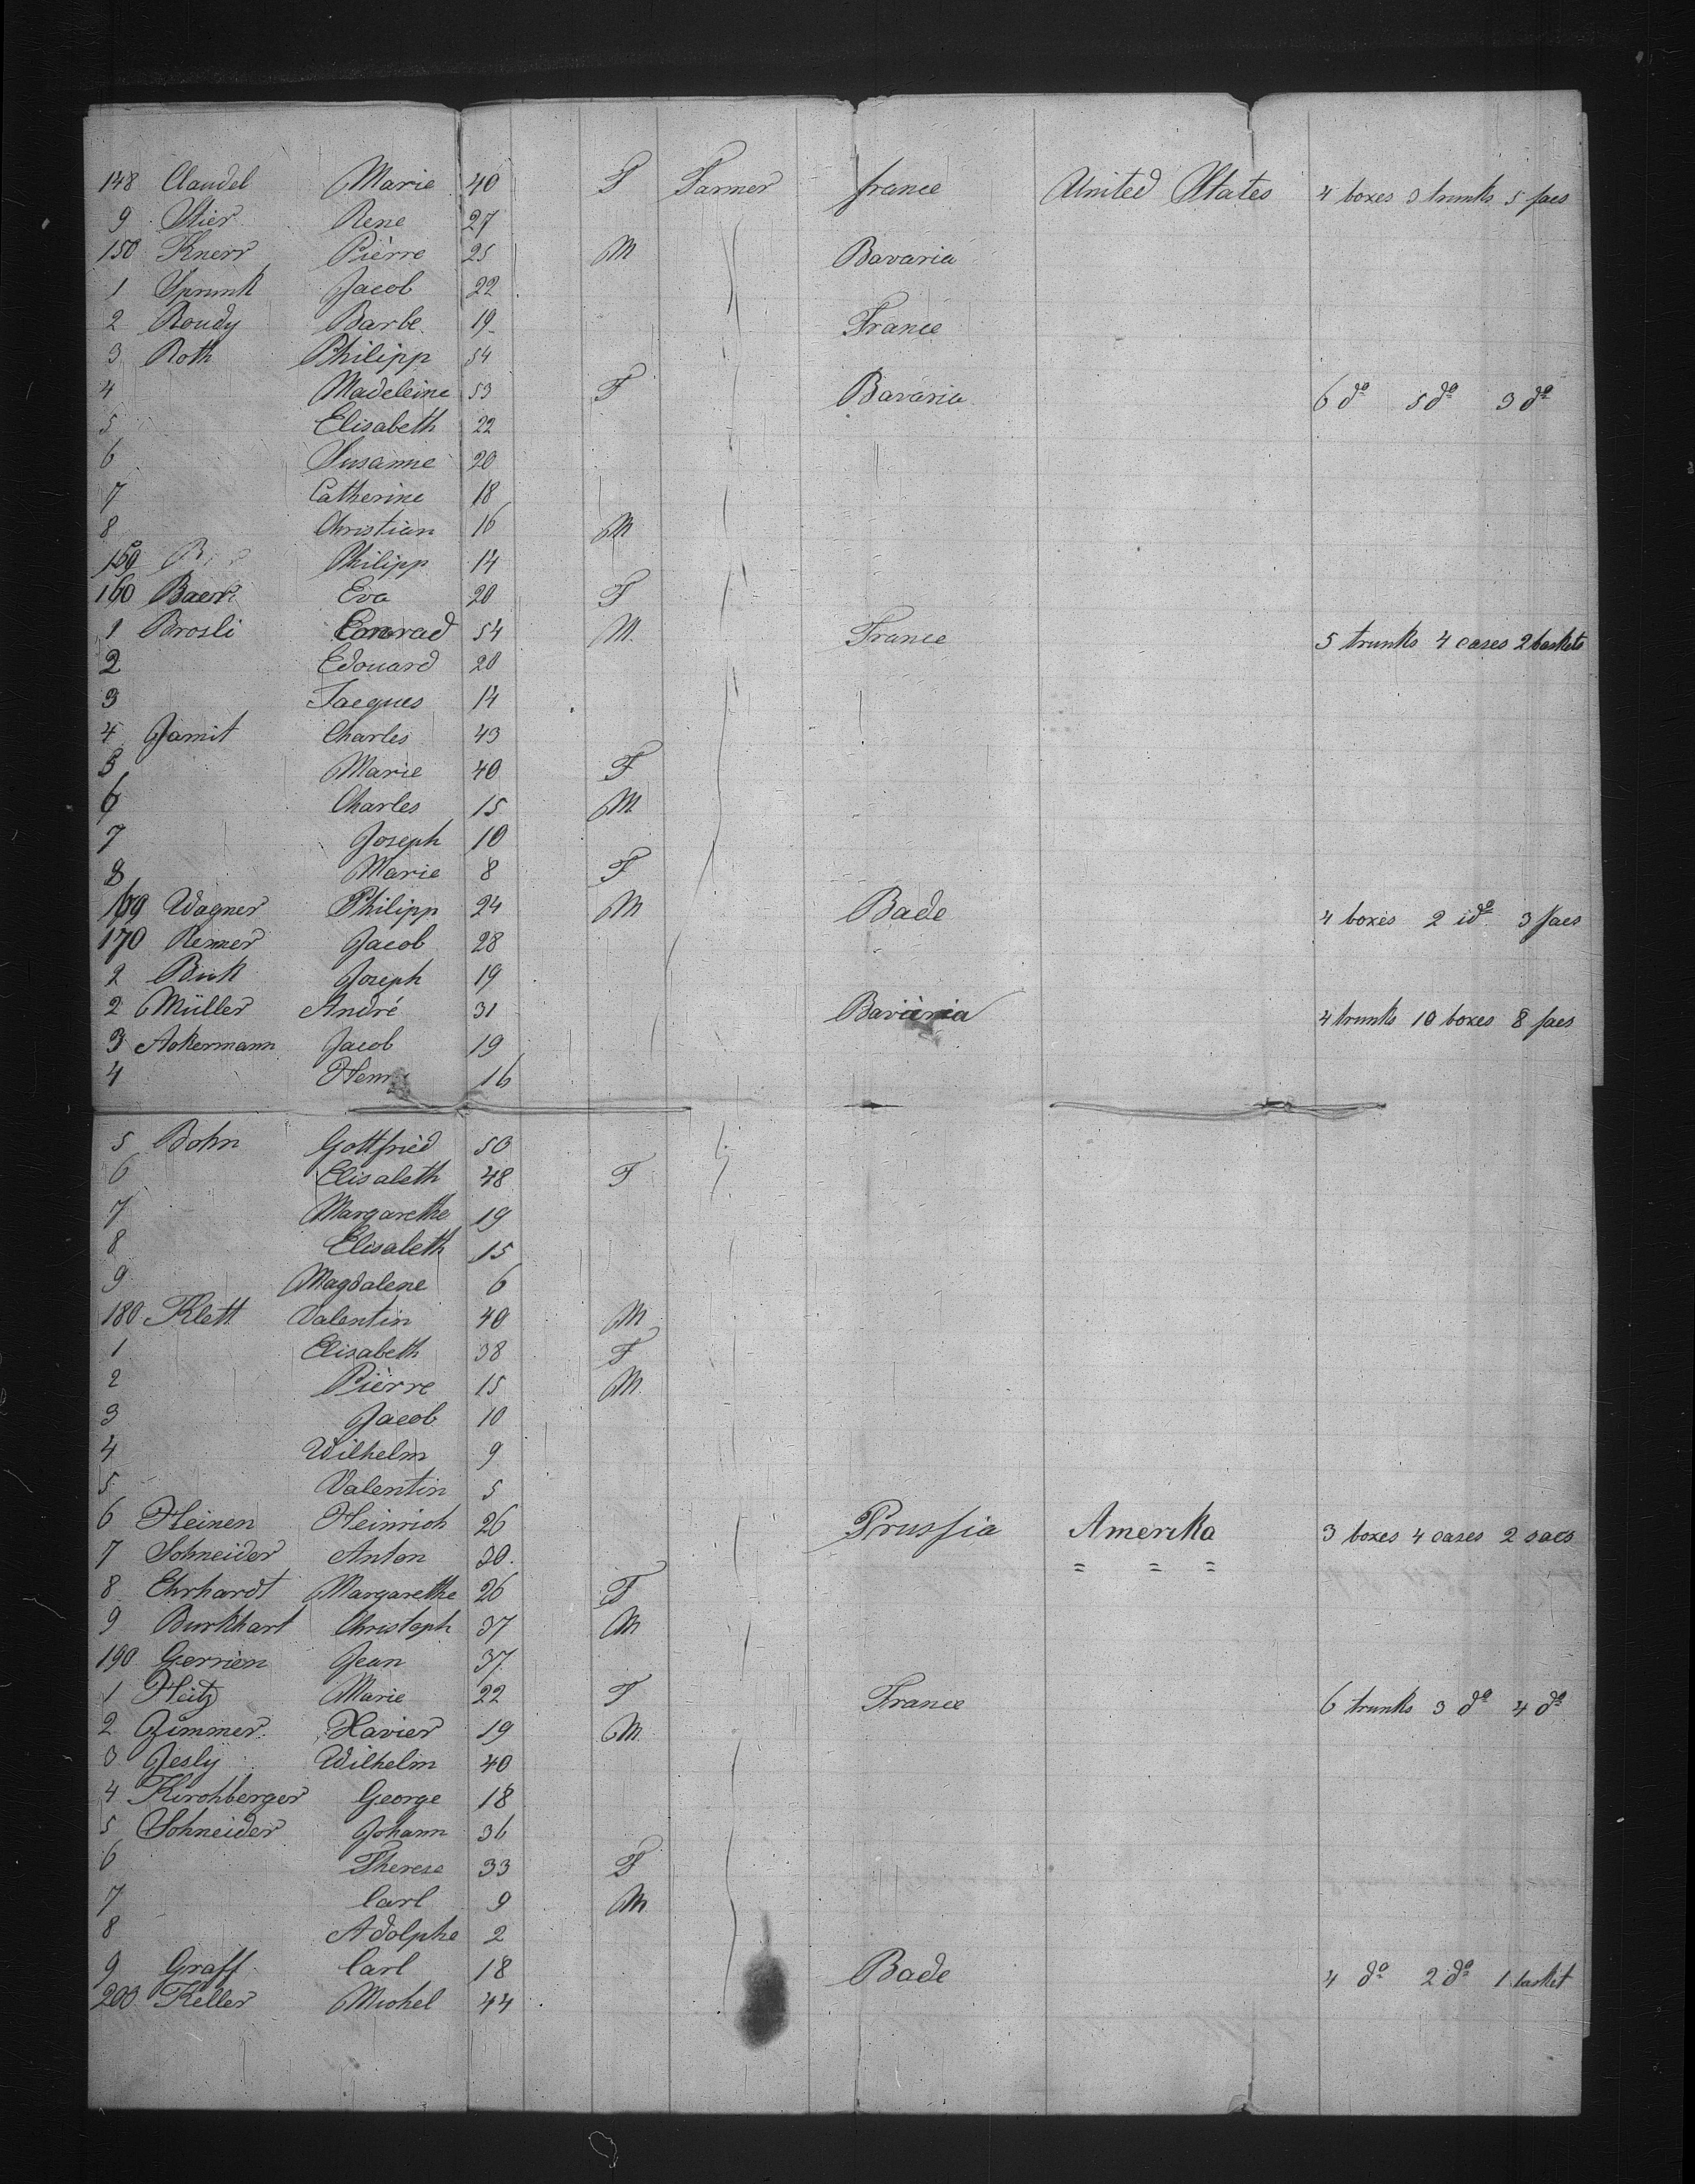 148 Claudel Marie 40 F Farmer france United States 4 boxes 3 trunks 5 sacs
9 Stier Rene 27
150 Knerr Pierre 25 M Bavaria
1 Sprunk Jacob 22
2 Roudy Barbe 19 France
3 Roth Philipp 54
4 Madeleine 53 F Bavaria 6 do 5 do 3 do
5 Elisabeth 22
6 Susanne 20
7 Catherine 18
8 Christian 16 M
159 Philipp 14
160 Baer Eva 20 F
1 Brosli Conrad 54 M France 5 trunks 4 cases 2 baskets
2 Edouard 20
3 Jacques 14
4 Jamit Charles 43
5 Marie 40 F
6 Charles 15 M
7 Joseph 10
8 Marie 8 F
169 Wagner Philipp 24 M Bade 4 boxes 2 ido 3 sacs
170 Remer Jacob 28
2 Buk Joseph 19
2 Müller André 31 Bavaria 4 trunks 10 boxes 8 sacs
3 Ackermann Jacob 19
4 Henri 16
5 Bohn Gottfried 50
6 Elisabeth 48 F
7 Margarethe 19
8 Elisabeth 15
9 Magdalene 6
180 Klett Valentin 40 M
1 Elisabeth 38 F
2 Pierre 15 M
3 Jacob 10
4 Wilhelm 9
5 Valentin 5
6 Heinen Heinrich 26 Prussia Amerika 3 boxes 4 cases 2 sacs
7 Schneider Anton 20 = = =
8 Ehrhardt Margarethe 26 F
9 Burkhart Christoph 37 M
190 Gerrien Jean 37
1 Heitz Marie 22 F France 6 trunks 3 do 4 do
2 Zimmer Xavier 19 M
3 Jesly Wilhelm 40
4 Kirchberger George 18
5 Schneider Johann 36
6 Therese 33 F
7 Carl 9 M
8 Adolphe 2
9 Graff Carl 18 Bade 4 do 2 do 1 basket
200 Keller Michel 44